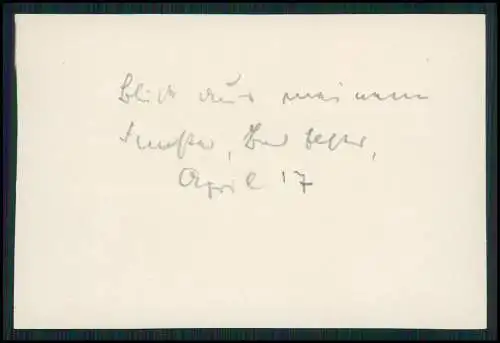 Blick aus meinem
Fenster, Bad
April 17